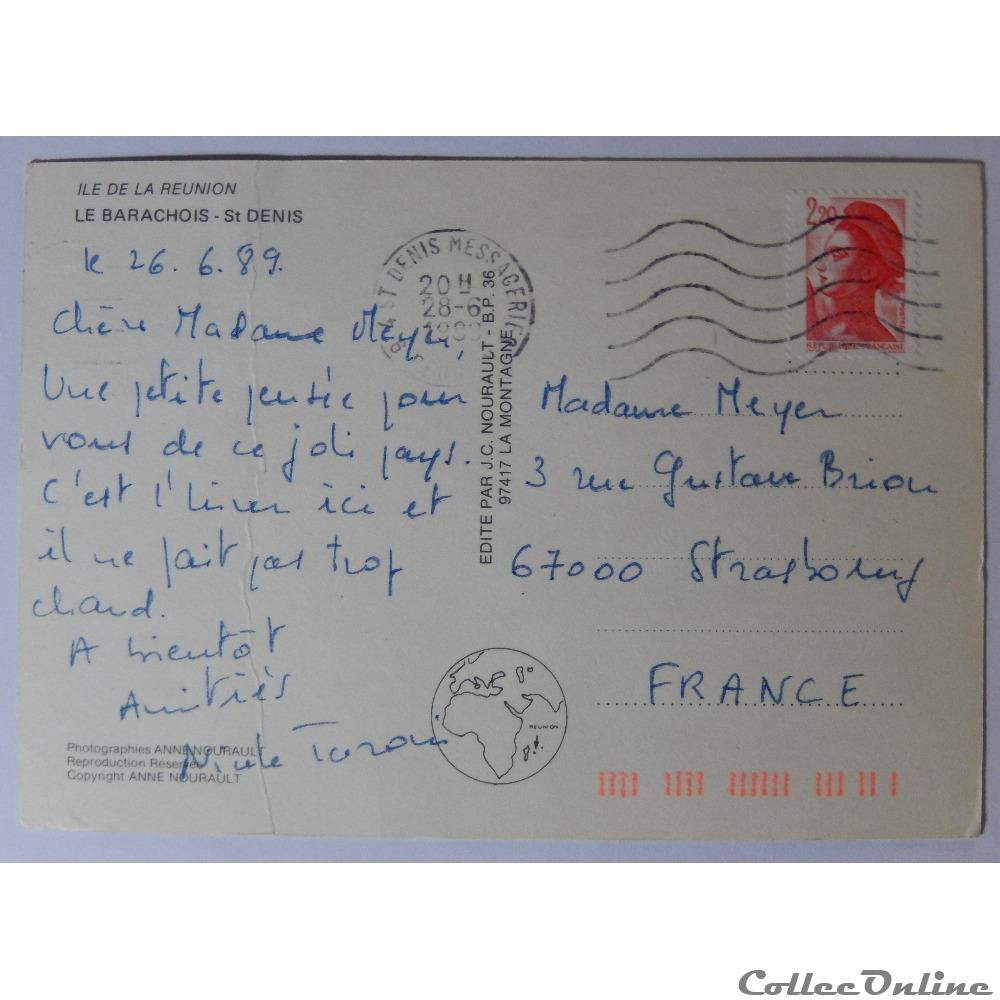 ILE DE LA REUNION
LE BARACHOIS - St DENIS
le 26. 6. 89.
Chère Madame Meyer,
Une petite pensée pour
vous de ce joli pays.
C'est l'hiver ici et
il ne fait pas trop
chaud.
A bientôt
Amitiés
Nicole
Photographies ANNE NOURAULT
Reproduction Réservée
Copyright ANNE NOURAULT
ST DENIS MESSAGERIE
20 H
28-6
1989
EDITE PAR J.C. NOURAULT - B.P. 36
97417 LA MONTAGNE
REUNION
2,20
REPUBLIQUE FRANÇAISE
Madame Meyer
3 rue Gustave Brion
67000 Strasbourg
FRANCE
CollecOnline